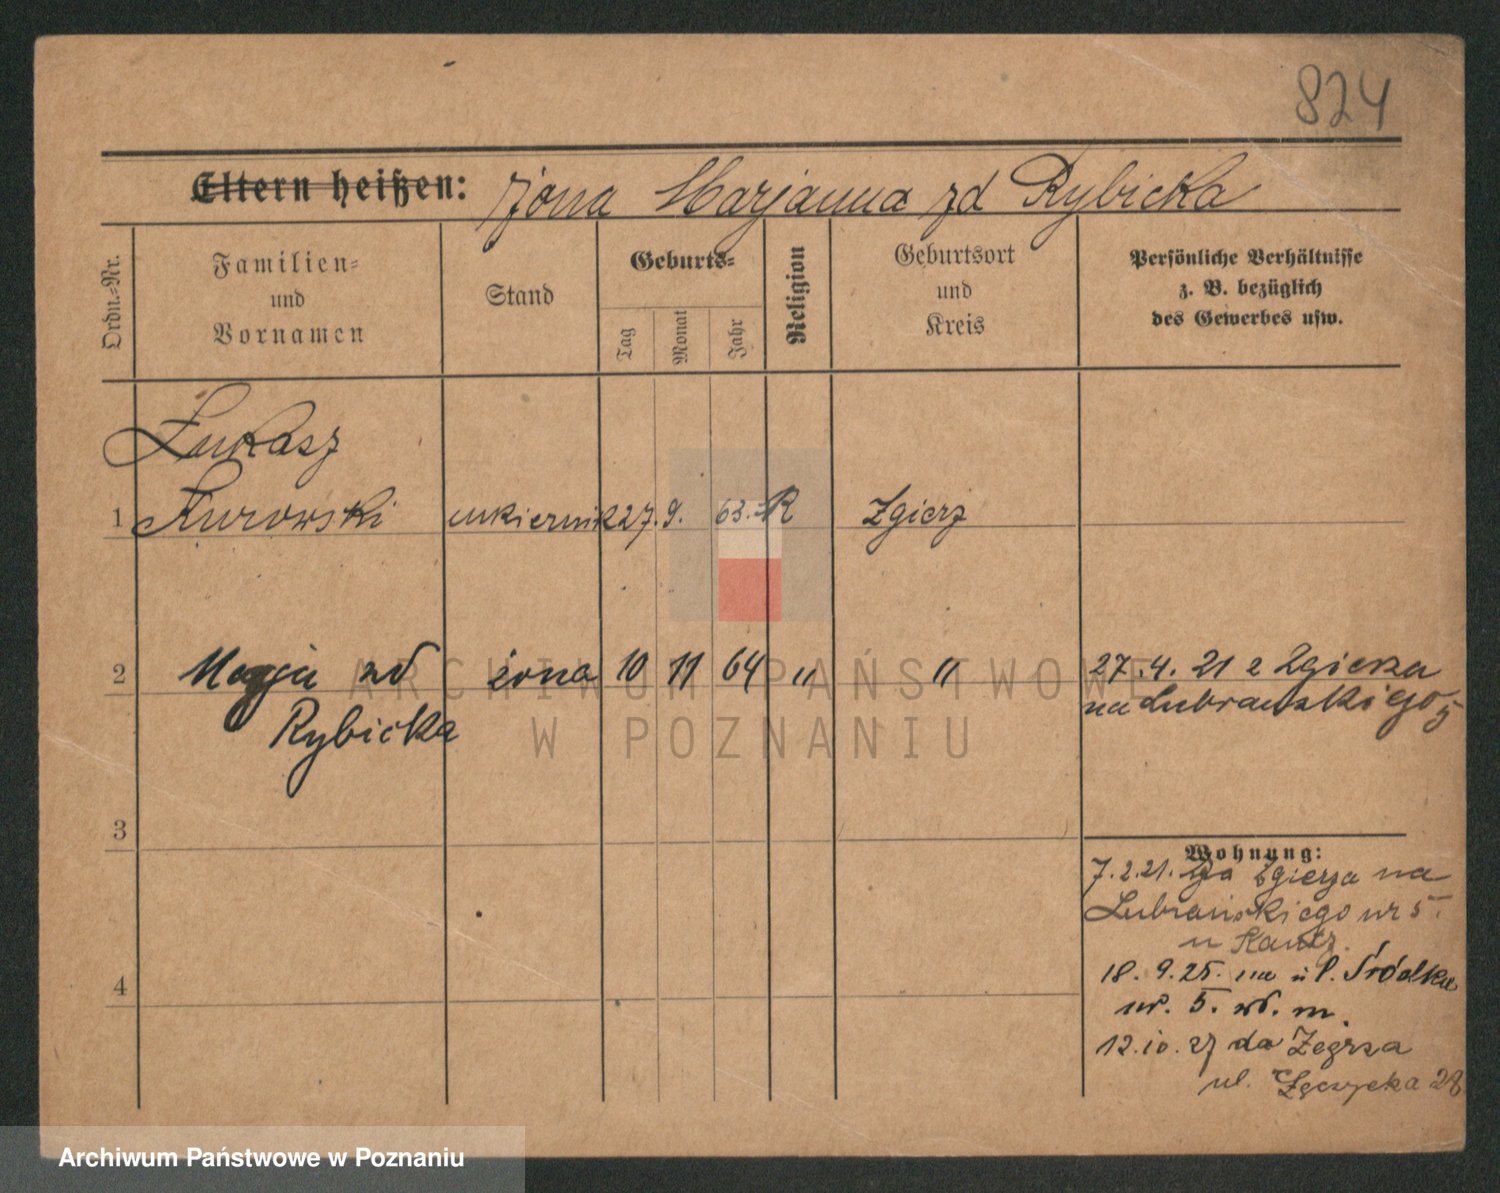 824
Eltern heißen: żona Marjanna zd Rybicka
Ordn.=Nr.
Familien=
und
Vornamen
Stand
Geburts=
Tag
Monat
Jahr
Religion
Geburtsort
und
Kreis
Persönliche Verhältnisse
z. B. bezüglich
des Gewerbes usw.
Łukasz
1 Kurowski cukiernik 27. 9. 63. R Zgierz
2 Marja zd żona 10 11 64 " " 27. 4. 21 z Zgierza
Rybicka
na Lubrańskiego 5
3
4
Wohnung:
7.2.21. Zgierza na
Lubrańskiego nr 5.
u
18. 9. 25. na ul. Śródka
nr. 5. m.
12. 10. 27 do Zegrza
ul. Łęczycka 28
ARCHIWUM PAŃSTWOWE
W POZNANIU
Archiwum Państwowe w Poznaniu